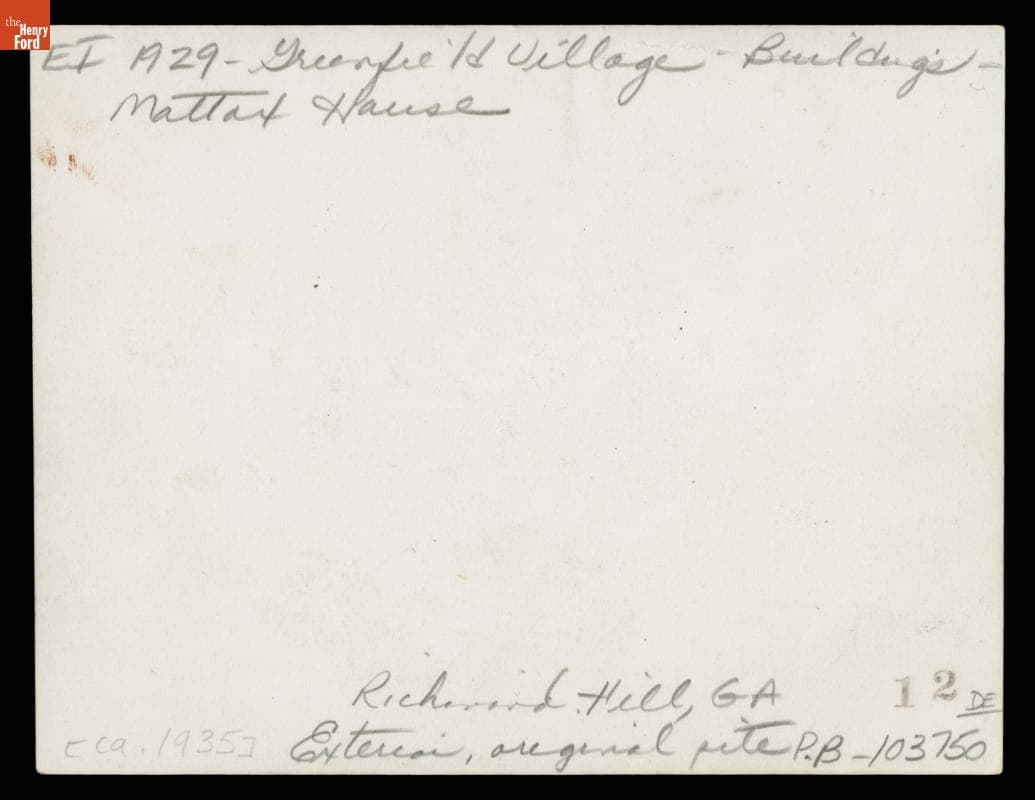 the
Henry
Ford
EI 1929 - Greenfield Village - Buildings -
Mattox House
Richmond Hill, GA
12 DE
[ca. 1935] Exterior, original site P.B - 103750